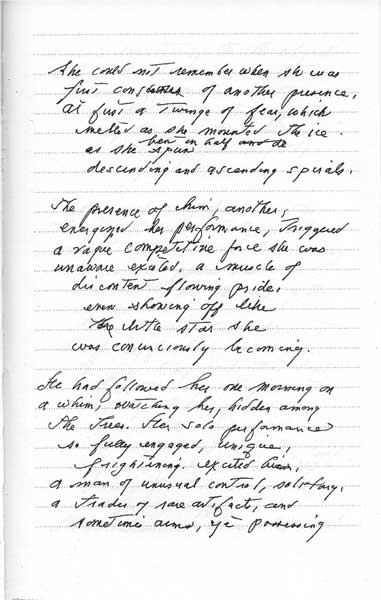 She could not remember when she was
first conscious of another presence,
at first a twinge of fear, which
melted as she mounted the ice.
bent in half and de
as she spun
descending and ascending spirals.
The presence of him, another,
energized her performance, triggered
a vague competitive force she was
unaware existed, a muscle of
discontent flowing pride,
even showing off like
the little star she
was consciously becoming.
He had followed her one morning on
a whim, watching her, hidden among
the trees. Her solo performance
so fully engaged, unique,
frightening. excited him,
a man of unusual control, solitary,
a trader of rare artifacts, and
sometimes arms, possessing